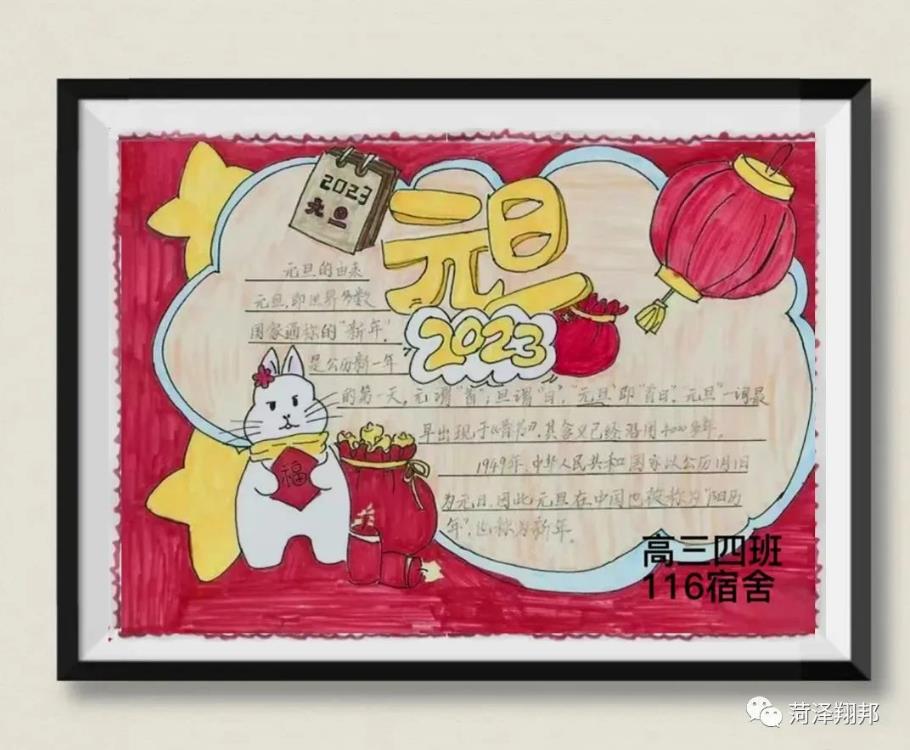 2023
元旦
元旦
2023
元旦的由来
元旦，即世界多数
国家通称的“新年”，
是公历新一年
的第一天，元谓“首”；旦谓“日”，“元旦”即“首日”，元旦”一词最
早出现于《晋书》，其含义已经沿用4000多年。
1949年，中华人民共和国家以公历1月1日
为元旦，因此元旦在中国也被称为“阳历
年”，也称为新年。
福
高三四班
116宿舍
菏泽翔邦